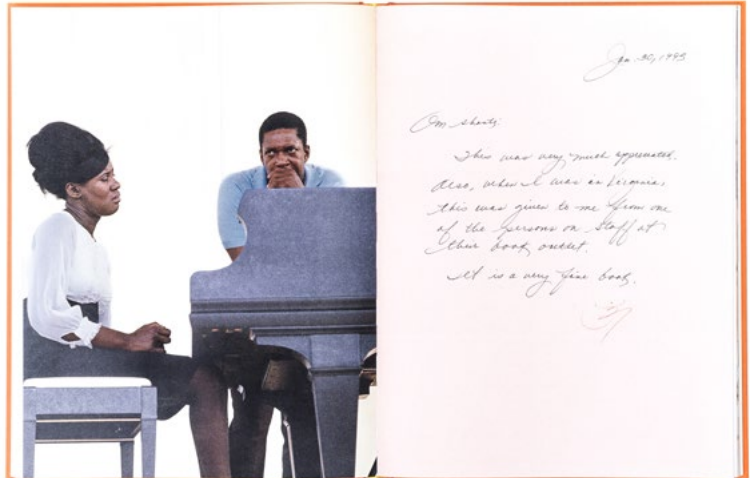 Jan 30, 1995
Om shanti:
This was very much appreciated.
Also, when I was in Virginia,
this was given to me from one
of the persons on staff at
their book outlet.
It is a very fine book.